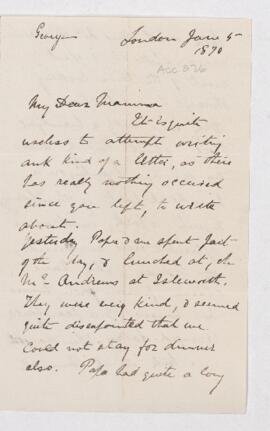 George
London Jan 5
1890
ACC 826
My Dear Mamma
It is quite
useless to attempt writing
any kind of a letter, as there
has really nothing occured
since you left, to write
about.
Yesterday Papa & me spent part
of the day, & lunched at, the
Andrews at Isleworth.
They were very kind, & seemed
quite disapointed that we
could not stay for dinner
also. Papa had quite a long